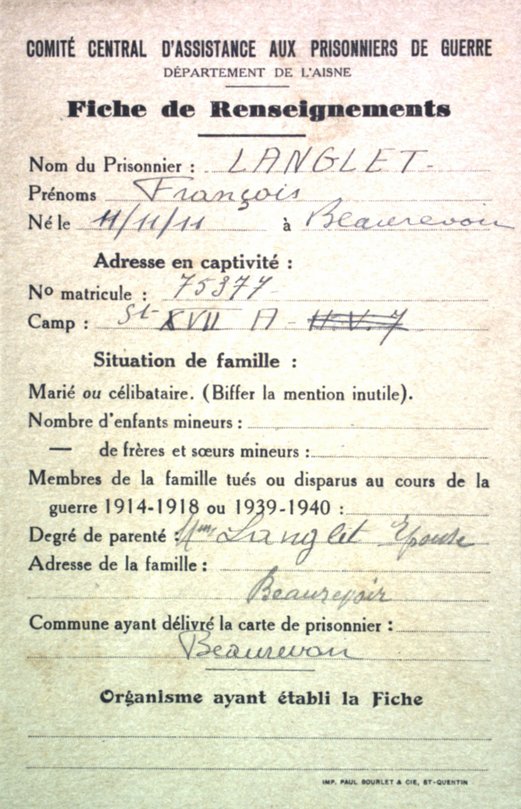 COMITÉ CENTRAL D'ASSISTANCE AUX PRISONNIERS DE GUERRE
DÉPARTEMENT DE L'AISNE
Fiche de Renseignements
Nom du Prisonnier : LANGLET
Prénoms François
Né le 11/11/11 à Beaurevoir
Adresse en captivité :
No matricule : 75377
Camp : St XVII A - H.V.7
Situation de famille :
Marié ou célibataire. (Biffer la mention inutile).
Nombre d'enfants mineurs :
— de frères et sœurs mineurs :
Membres de la famille tués ou disparus au cours de la
guerre 1914-1918 ou 1939-1940 :
Degré de parenté : Mme Langlet Epouse
Adresse de la famille :
Beaurevoir
Commune ayant délivré la carte de prisonnier :
Beaurevoir
Organisme ayant établi la Fiche
IMP. PAUL BOURLET & CIE, ST-QUENTIN